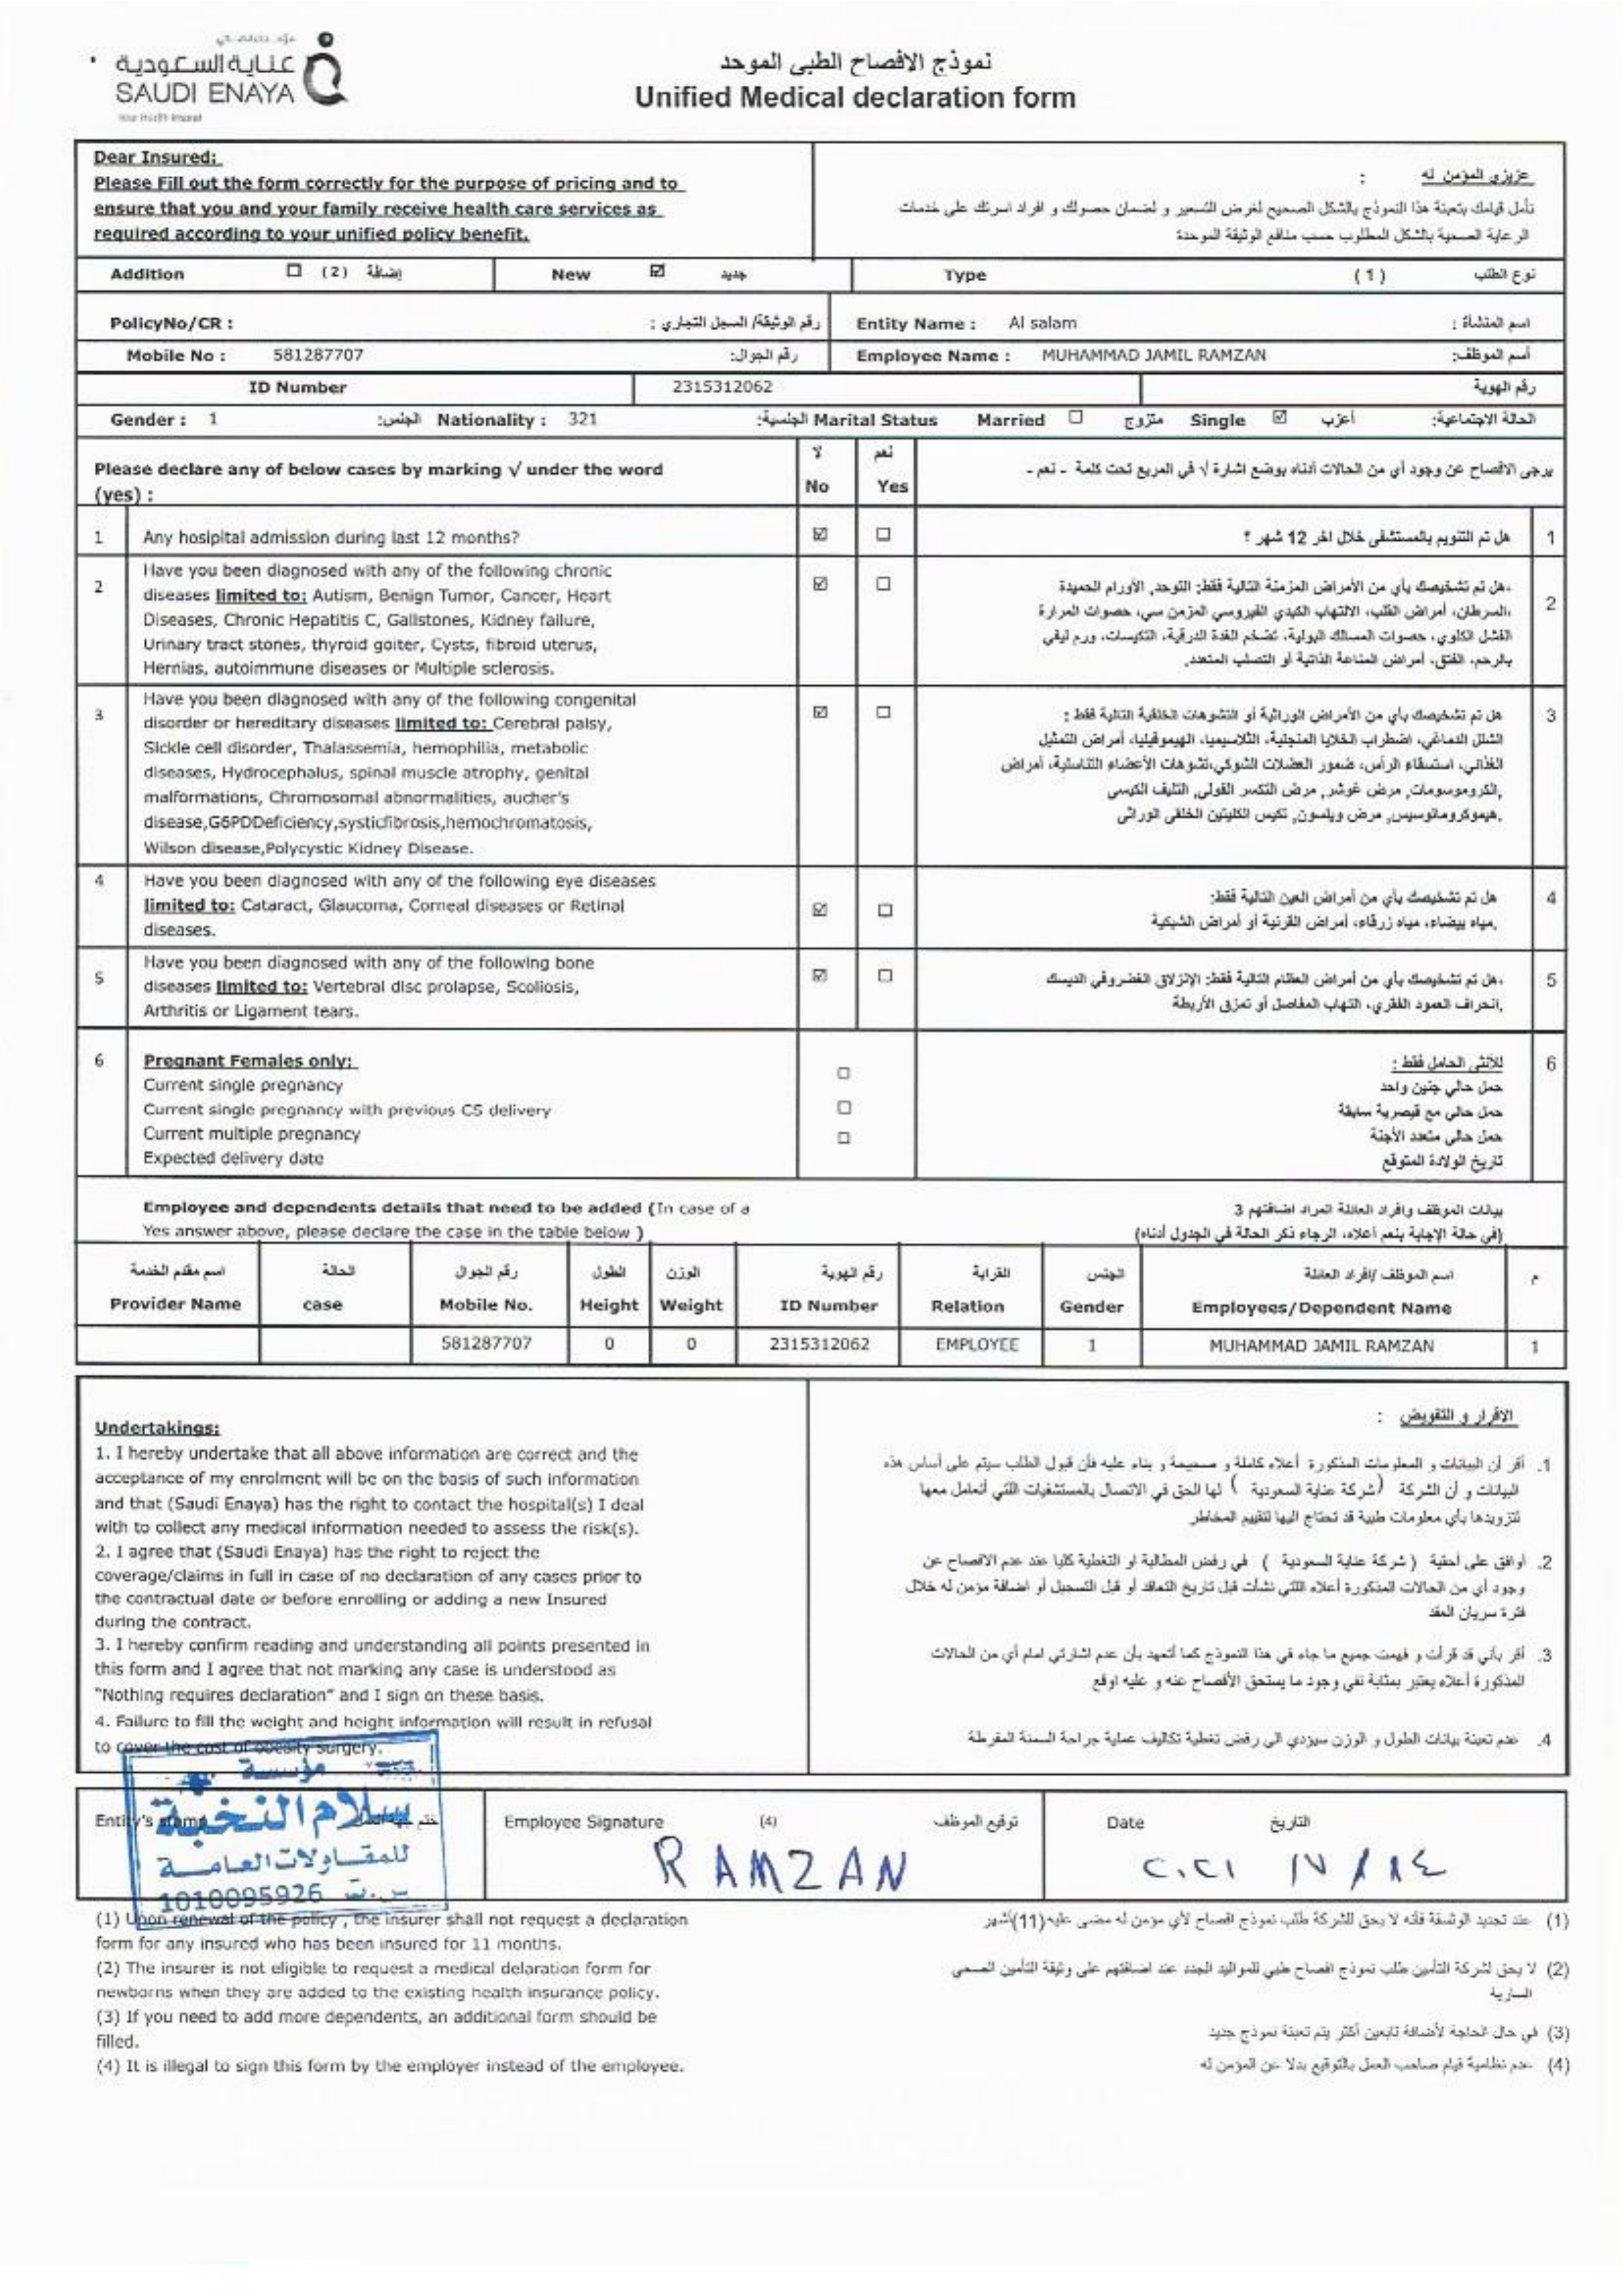 عناية السعودية
SAUDI ENAYA
نموذج الافصاح الطبى الموحد
Unified Medical declaration form
Dear Insured:
Please Fill out the form correctly for the purpose of pricing and to
ensure that you and your family receive health care services as
required according to your unified policy benefit.
عزيزي المؤمن له :
نأمل قيامك بتعبئة هذا النموذج بالشكل الصحيح لغرض التسعير و لضمان حصولك و افراد اسرتك على خدمات
الرعاية الصحية بالشكل المطلوب حسب منافع الوثيقة الموحدة
Addition ☐ (2) إضافة New ☑ جديد Type (1) نوع الطلب
PolicyNo/CR : رقم الوثيقة/ السجل التجاري : Entity Name : Al salam اسم المنشأة :
Mobile No : 581287707 رقم الجوال: Employee Name : MUHAMMAD JAMIL RAMZAN أسم الموظف:
ID Number 2315312062 رقم الهوية
Gender : 1 الجنس: Nationality : 321 الجنسية: Marital Status Married ☐ متزوج Single ☑ أعزب الحالة الاجتماعية:
Please declare any of below cases by marking √ under the word
(yes) :
لا نعم
No Yes
يرجى الافصاح عن وجود أي من الحالات أدناه بوضع اشارة √ في المربع تحت كلمة - نعم -
1 Any hosipital admission during last 12 months? ☑ ☐ هل تم التنويم بالمستشفى خلال اخر 12 شهر ؟ 1
2 Have you been diagnosed with any of the following chronic
diseases limited to: Autism, Benign Tumor, Cancer, Heart
Diseases, Chronic Hepatitis C, Gallstones, Kidney failure,
Urinary tract stones, thyroid goiter, Cysts, fibroid uterus,
Hernias, autoimmune diseases or Multiple sclerosis.
☑ ☐
هل تم تشخيصك بأي من الأمراض المزمنة التالية فقط: التوحد, الأورام الحميدة،
السرطان، أمراض القلب، الالتهاب الكبدي الفيروسي المزمن سي، حصوات المرارة،
الفشل الكلوي، حصوات المسالك البولية، تضخم الغدة الدرقية، التكيسات، ورم ليفي
بالرحم، الفتق، أمراض المناعة الذاتية أو التصلب المتعدد. 2
3 Have you been diagnosed with any of the following congenital
disorder or hereditary diseases limited to: Cerebral palsy,
Sickle cell disorder, Thalassemia, hemophilia, metabolic
diseases, Hydrocephalus, spinal muscle atrophy, genital
malformations, Chromosomal abnormalities, aucher's
disease,G6PDDeficiency,systicfibrosis,hemochromatosis,
Wilson disease,Polycystic Kidney Disease.
☑ ☐
هل تم تشخيصك بأي من الأمراض الوراثية أو التشوهات الخلقية التالية فقط : 3
الشلل الدماغي، اضطراب الخلايا المنجلية، الثلاسيميا، الهيموفيليا، أمراض التمثيل
الغذائي، استسقاء الرأس، ضمور العضلات الشوكي،تشوهات الأعضاء التناسلية، أمراض
الكروموسومات, مرض غوشر, مرض التكسر الفولي, التليف الكيسي,
هيموكروماتوسيس, مرض ويلسون, تكيس الكليتين الخلقي الوراثي.
4 Have you been diagnosed with any of the following eye diseases
limited to: Cataract, Glaucoma, Corneal diseases or Retinal
diseases.
☑ ☐
هل تم تشخيصك بأي من أمراض العين التالية فقط: 4
مياه بيضاء، مياه زرقاء، أمراض القرنية أو أمراض الشبكية.
5 Have you been diagnosed with any of the following bone
diseases limited to: Vertebral disc prolapse, Scoliosis,
Arthritis or Ligament tears.
☑ ☐
هل تم تشخيصك بأي من أمراض العظام التالية فقط: الإنزلاق الغضروفي الديسك، 5
انحراف العمود الفقري، التهاب المفاصل أو تمزق الأربطة.
6 Pregnant Females only:
Current single pregnancy ☐
Current single pregnancy with previous CS delivery ☐
Current multiple pregnancy ☐
Expected delivery date
للأنثى الحامل فقط : 6
حمل حالي جنين واحد
حمل حالي مع قيصرية سابقة
حمل حالي متعدد الأجنة
تاريخ الولادة المتوقع
Employee and dependents details that need to be added (In case of a
Yes answer above, please declare the case in the table below )
بيانات الموظف وافراد العائلة المراد اضافتهم 3
(في حالة الإجابة بنعم أعلاه، الرجاء ذكر الحالة في الجدول أدناه)
اسم مقدم الخدمة الحالة رقم الجوال الطول الوزن رقم الهوية القرابة الجنس اسم الموظف /افراد العائلة م
Provider Name case Mobile No. Height Weight ID Number Relation Gender Employees/Dependent Name
581287707 0 0 2315312062 EMPLOYEE 1 MUHAMMAD JAMIL RAMZAN 1
Undertakings:
1. I hereby undertake that all above information are correct and the
acceptance of my enrolment will be on the basis of such information
and that (Saudi Enaya) has the right to contact the hospital(s) I deal
with to collect any medical information needed to assess the risk(s).
2. I agree that (Saudi Enaya) has the right to reject the
coverage/claims in full in case of no declaration of any cases prior to
the contractual date or before enrolling or adding a new Insured
during the contract.
3. I hereby confirm reading and understanding all points presented in
this form and I agree that not marking any case is understood as
"Nothing requires declaration" and I sign on these basis.
4. Failure to fill the weight and height information will result in refusal
to cover the cost of obesity surgery.
الاقرار و التفويض :
1. أقر أن البيانات و المعلومات المذكورة أعلاه كاملة و صحيحة و بناء عليه فأن قبول الطلب سيتم على أساس هذه
البيانات و أن الشركة (شركة عناية السعودية ) لها الحق في الاتصال بالمستشفيات اللتي أتعامل معها
لتزويدها بأي معلومات طبية قد تحتاج اليها لتقييم المخاطر
2. أوافق على أحقية ( شركة عناية السعودية ) في رفض المطالبة او التغطية كليا عند عدم الافصاح عن
وجود أي من الحالات المذكورة أعلاه اللتي نشأت قبل تاريخ التعاقد أو قبل التسجيل أو اضافة مؤمن له خلال
فترة سريان العقد
3. أقر بأني قد قرأت و فهمت جميع ما جاء في هذا النموذج كما أتعهد بأن عدم اشارتي امام أي من الحالات
المذكورة أعلاه يعتبر بمثابة نفي وجود ما يستحق الأفصاح عنه و عليه اوقع
4. عدم تعبئة بيانات الطول و الوزن سيؤدي الى رفض تغطية تكاليف عملية جراحة السمنة المفرطة
مؤسسة
سلام النخبة
للمقاولات العامة
س.ت 1010095926
Entity's stamp
Employee Signature (4) توقيع الموظف
RAMZAN
Date التاريخ
٢٠٢١ / ١٧ / ١٤
(1) Upon renewal of the policy , the insurer shall not request a declaration
form for any insured who has been insured for 11 months.
(2) The insurer is not eligible to request a medical delaration form for
newborns when they are added to the existing health insurance policy.
(3) If you need to add more dependents, an additional form should be
filled.
(4) It is illegal to sign this form by the employer instead of the employee.
(1) عند تجديد الوثيقة فأنه لا يحق للشركة طلب نموذج افصاح لأي مؤمن له مضى عليه(11)أشهر
(2) لا يحق لشركة التأمين طلب نموذج افصاح طبي للمواليد الجدد عند اضافتهم على وثيقة التأمين الصحي
السارية
(3) في حال الحاجة لأضافة تابعين أكثر يتم تعبئة نموذج جديد
(4) عدم نظامية قيام صاحب العمل بالتوقيع بدلا عن المؤمن له